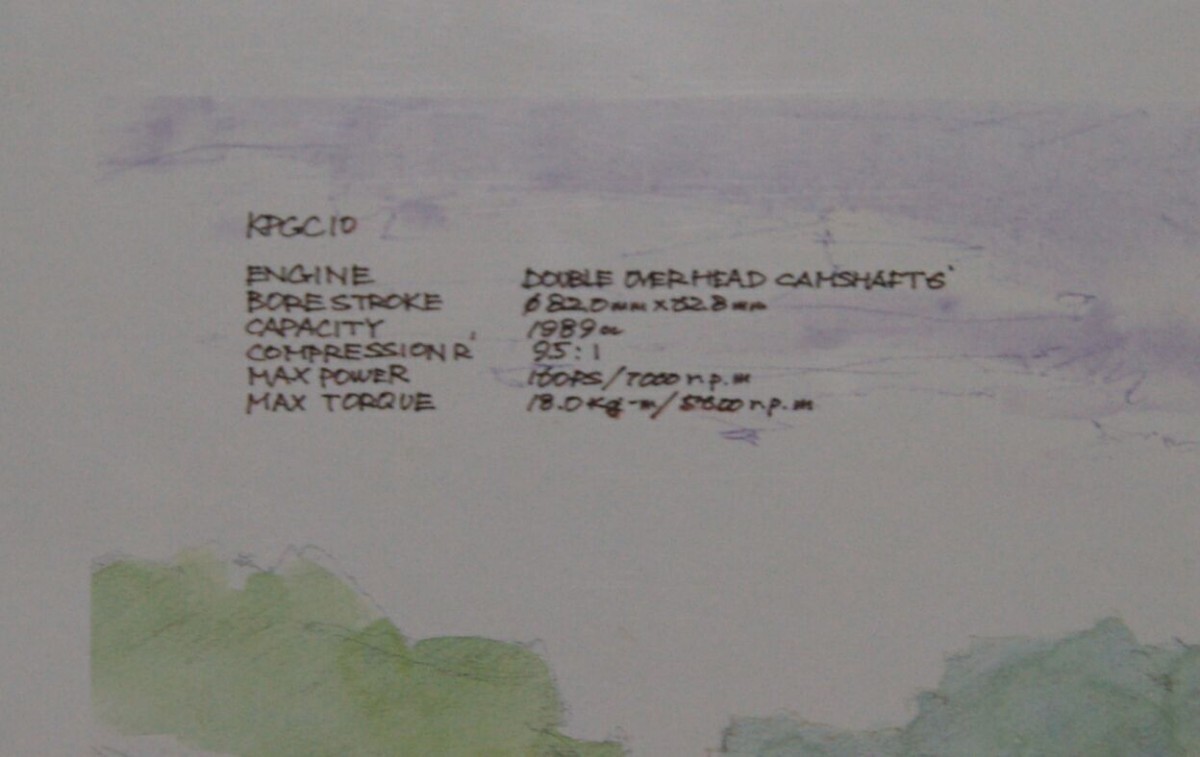 KPGC10
ENGINE DOUBLE OVERHEAD CAMSHAFT 6'
BORE STROKE φ82.0mm x 62.8mm
CAPACITY 1989cc
COMPRESSION R' 9.5:1
MAX POWER 160PS/7000 r.p.m
MAX TORQUE 18.0kg-m/5600 r.p.m